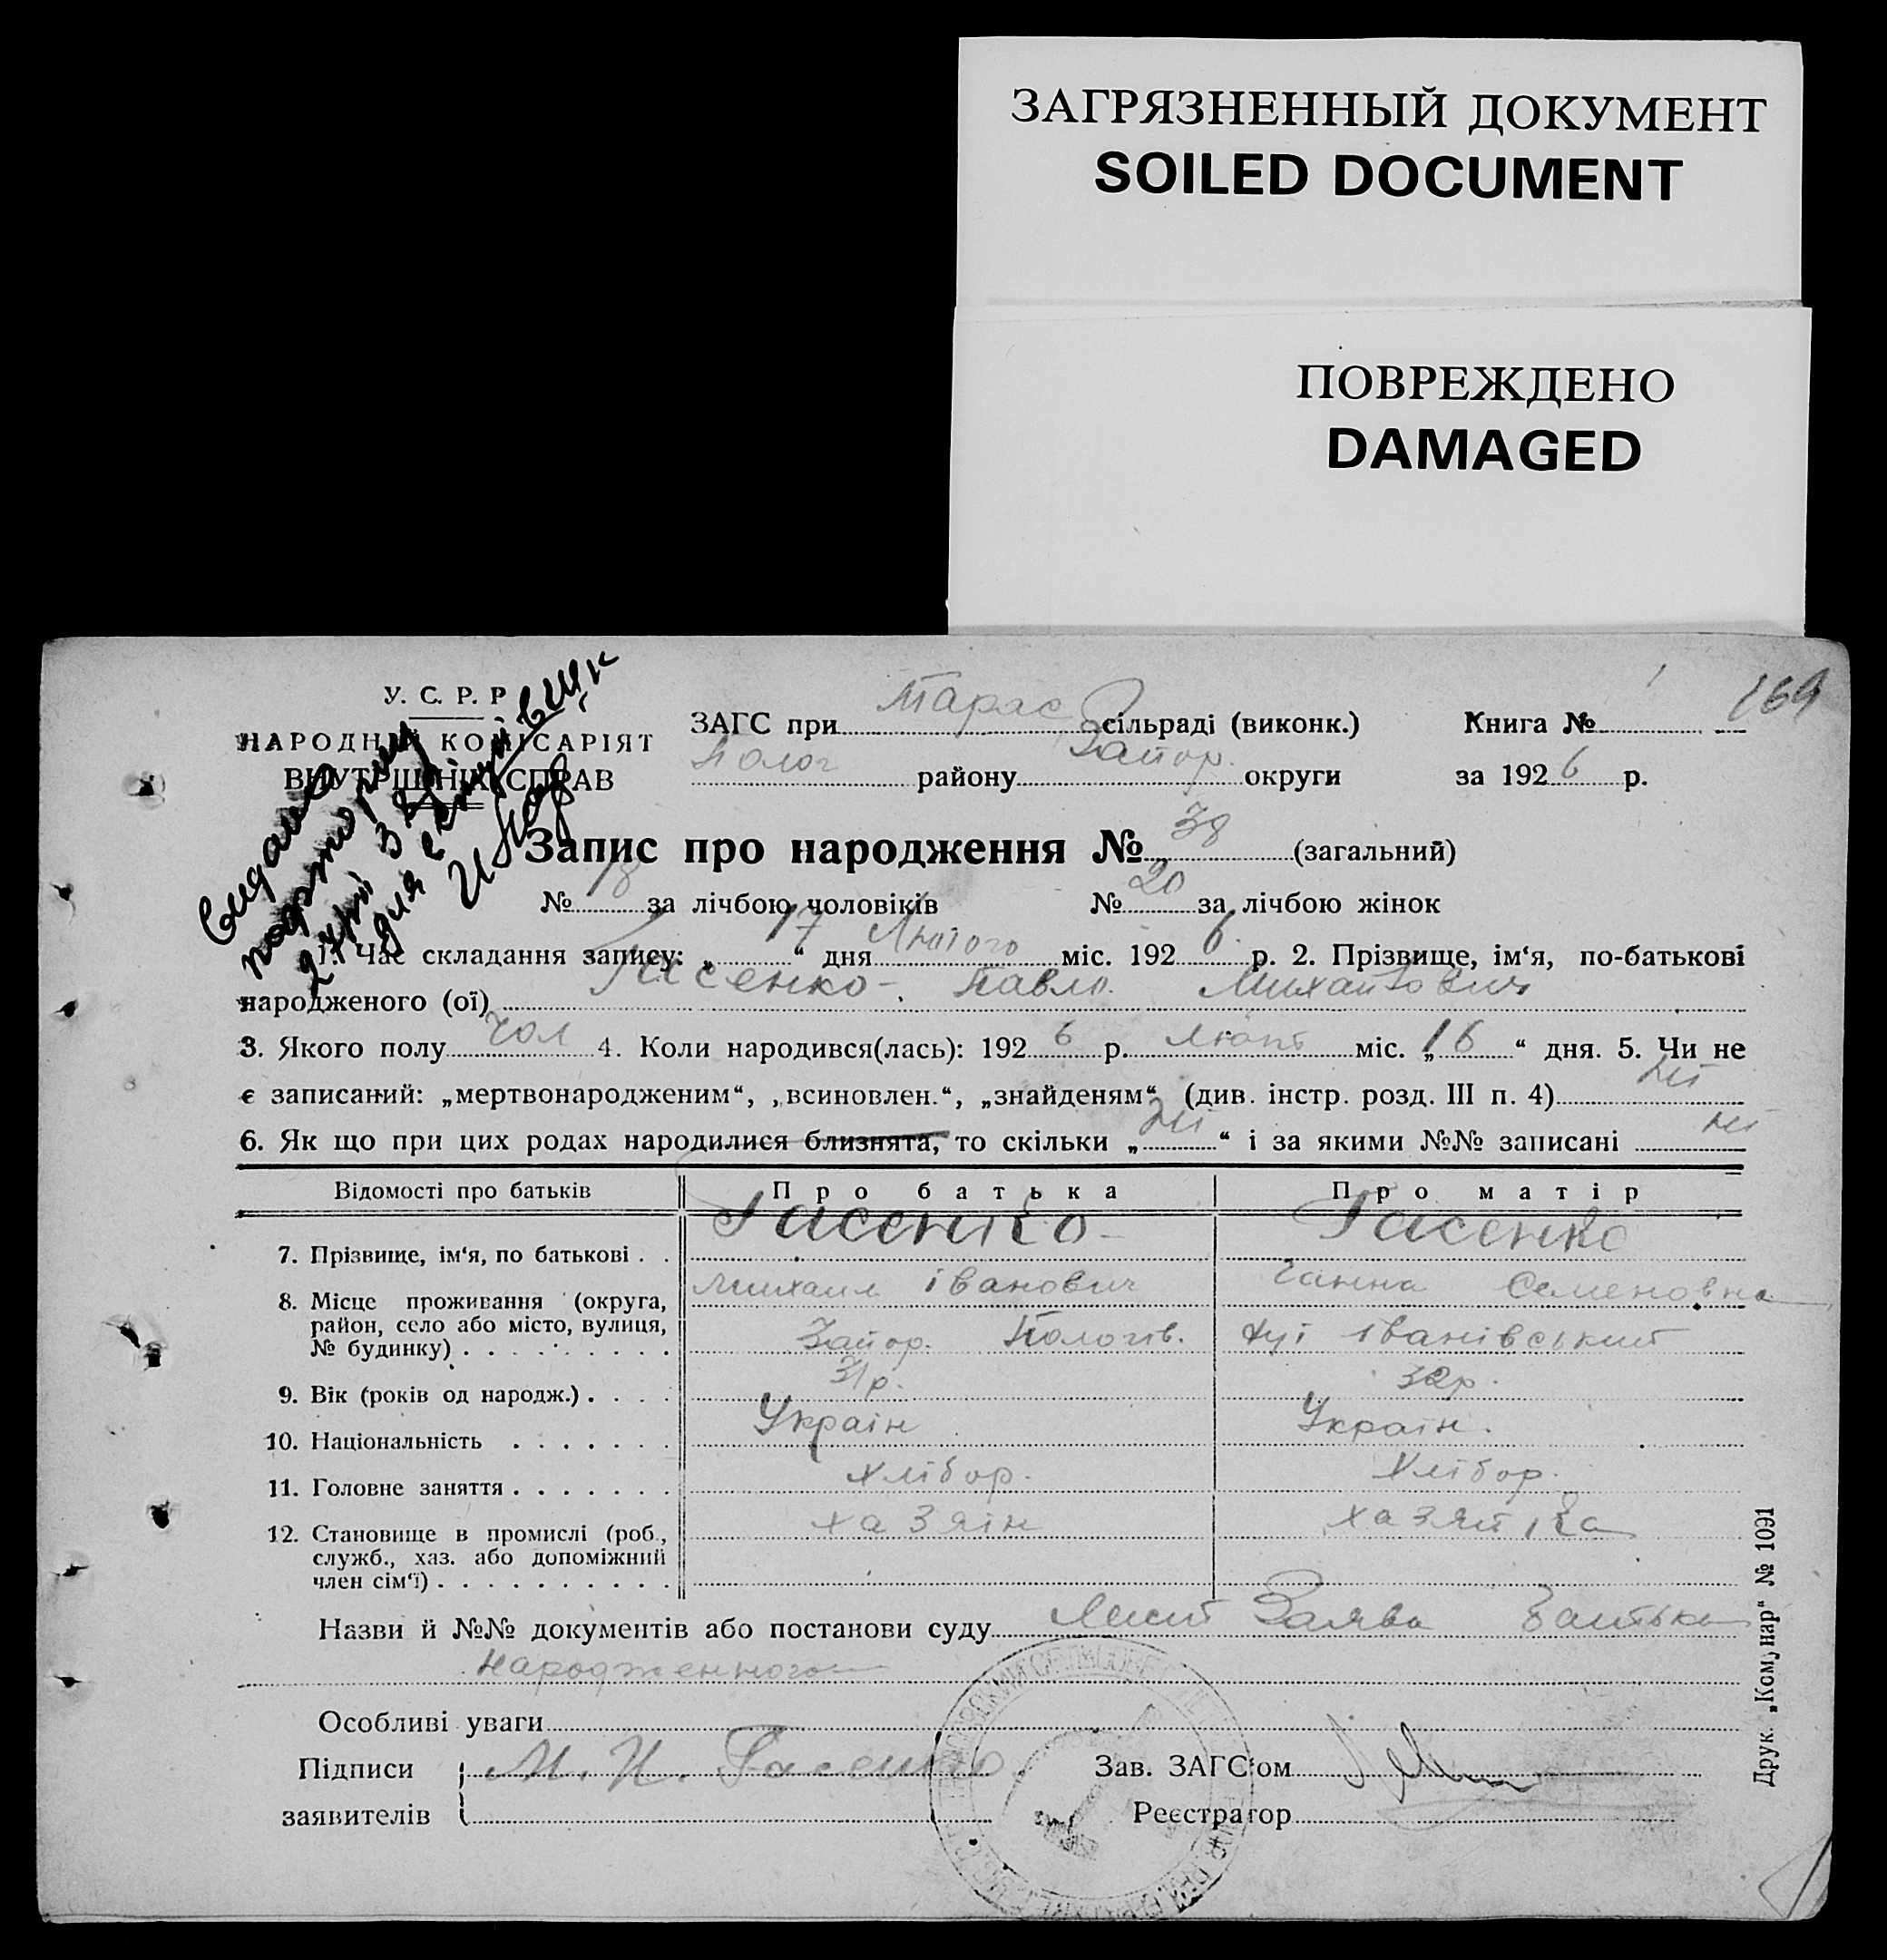 ЗАГРЯЗНЕННЫЙ ДОКУМЕНТ
SOILED DOCUMENT
ПОВРЕЖДЕНО
DAMAGED
169
У. С. Р. Р
НАРОДНІЙ КОМІСАРІЯТ
ВНУТРІШНІХ СПРАВ
ЗАГС при Тарас сільраді (виконк.) Книга №
Полог району Запор. округи за 1926 р.
Запис про народження № 38 (загальний)
№ 18 за лічбою чоловіків № 20 за лічбою жінок
1. Час складання запису: „ 17 “ дня Лютого міс. 1926 р. 2. Прізвище, ім‘я, по-батькові
народженого (ої) Гасенко - Павло Михайлович
3. Якого полу чол 4. Коли народився(лась): 1926 р. Лют міс. „ 16 “ дня. 5. Чи не
є записаний: „мертвонародженим“, „всиновлен.“, „знайденям“ (див. інстр. розд. III п. 4) ні
6. Як що при цих родах народилися близнята, то скільки „ ні “ і за якими №№ записані ні
Відомості про батьків Про батька Про матір
7. Прізвище, ім‘я, по батькові . . Гасенко - Гасенко
Михаил Іванович Ганна Семеновна
8. Місце проживання (округа,
район, село або місто, вулиця,
№ будинку) . . . . . . . . . Запор. Пологів. Іванівський
9. Вік (років од народж.) . . . . 31 р. 32 р.
10. Національність . . . . . . . Україн Україн.
11. Головне заняття . . . . . . . хлібор. хлібор.
12. Становище в промислі (роб.,
служб., хаз. або допоміжний
член сім‘ї) . . . . . . . . . . хазяін хазяйка
Назви й №№ документів або постанови суду Заява Батька
народженного
Особливі уваги
Підписи М. И. Гасенко Зав. ЗАГС‘ом
заявителів Реєстратор
Друк. „Комунар“ № 1091